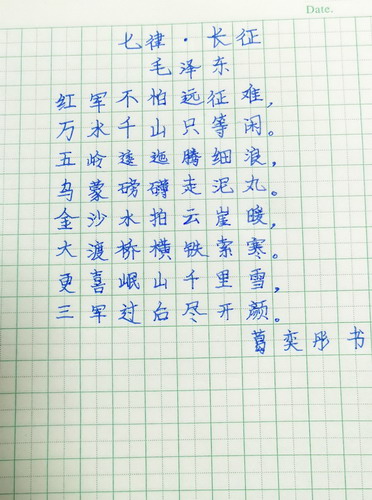 Date.
七律·长征
毛泽东
红军不怕远征难，
万水千山只等闲。
五岭逶迤腾细浪，
乌蒙磅礴走泥丸。
金沙水拍云崖暖，
大渡桥横铁索寒。
更喜岷山千里雪，
三军过后尽开颜。
葛奕彤书